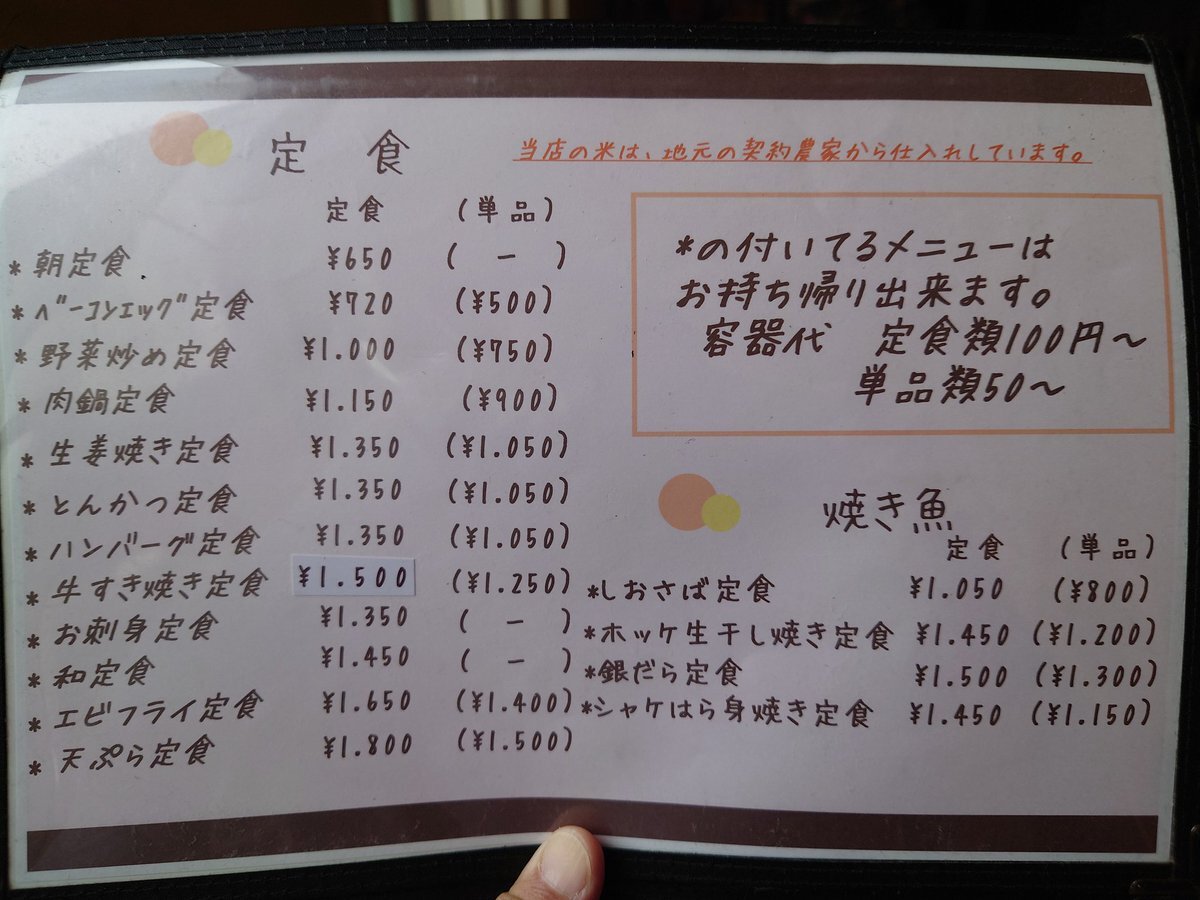 定 食
当店の米は、地元の契約農家から仕入れしています。
定食 (単品)
*朝定食 ¥650 ( ー )
*ﾍﾞｰｺﾝｴｯｸﾞ定食 ¥720 (¥500)
*野菜炒め定食 ¥1.000 (¥750)
*肉鍋定食 ¥1.150 (¥900)
*生姜焼き定食 ¥1.350 (¥1.050)
*とんかつ定食 ¥1.350 (¥1.050)
*ハンバーグ定食 ¥1.350 (¥1.050)
*牛すき焼き定食 ¥1.500 (¥1.250)
*お刺身定食 ¥1.350 ( ー )
*和定食 ¥1.450 ( ー )
*エビフライ定食 ¥1.650 (¥1.400)
*天ぷら定食 ¥1.800 (¥1.500)
*の付いてるメニューは
お持ち帰り出来ます。
容器代 定食類100円～
単品類50～
焼き魚
定食 (単品)
*しおさば定食 ¥1.050 (¥800)
*ホッケ生干し焼き定食 ¥1.450 (¥1.200)
*銀だら定食 ¥1.500 (¥1.300)
*シャケはら身焼き定食 ¥1.450 (¥1.150)